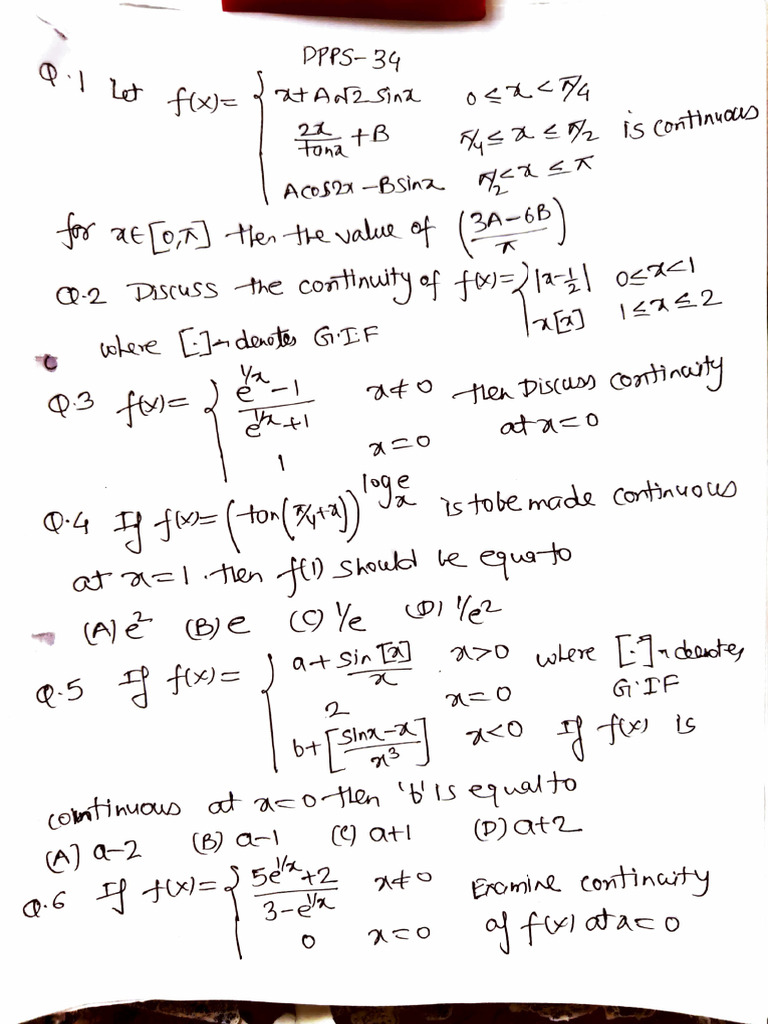 DPPS-34
Q.1 Let f(x)= { x+A√2 sinx 0≤x<π/4
2x/tanx +B π/4≤x≤π/2 is continuous
Acos2x-Bsinx π/2<x≤π
for x∈[0,π] then the value of (3A-6B/π)
Q.2 Discuss the continuity of f(x)= { |x-1/2| 0≤x<1
x[x] 1≤x≤2
where [.]→denotes G.I.F
Q.3 f(x)= { e^1/x -1 / e^1/x +1 x≠0 then Discuss continuity
1 x=0 at x=0
Q.4 If f(x)=(tan(π/4+x))^log_x e is to be made continuous
at x=1. then f(1) should be equa to
(A) e^2 (B) e (C) 1/e (D) 1/e^2
Q.5 If f(x)= { a+ sin[x]/x x>0 where [.]→denotes
2 x=0 G.I.F
b+[sinx-x/x^3] x<0 If f(x) is
continuous at x=0 then 'b' is equal to
(A) a-2 (B) a-1 (C) a+1 (D) a+2
Q.6 If f(x)= { 5e^1/x +2 / 3-e^1/x x≠0 Examine continuity
0 x=0 of f(x) at x=0